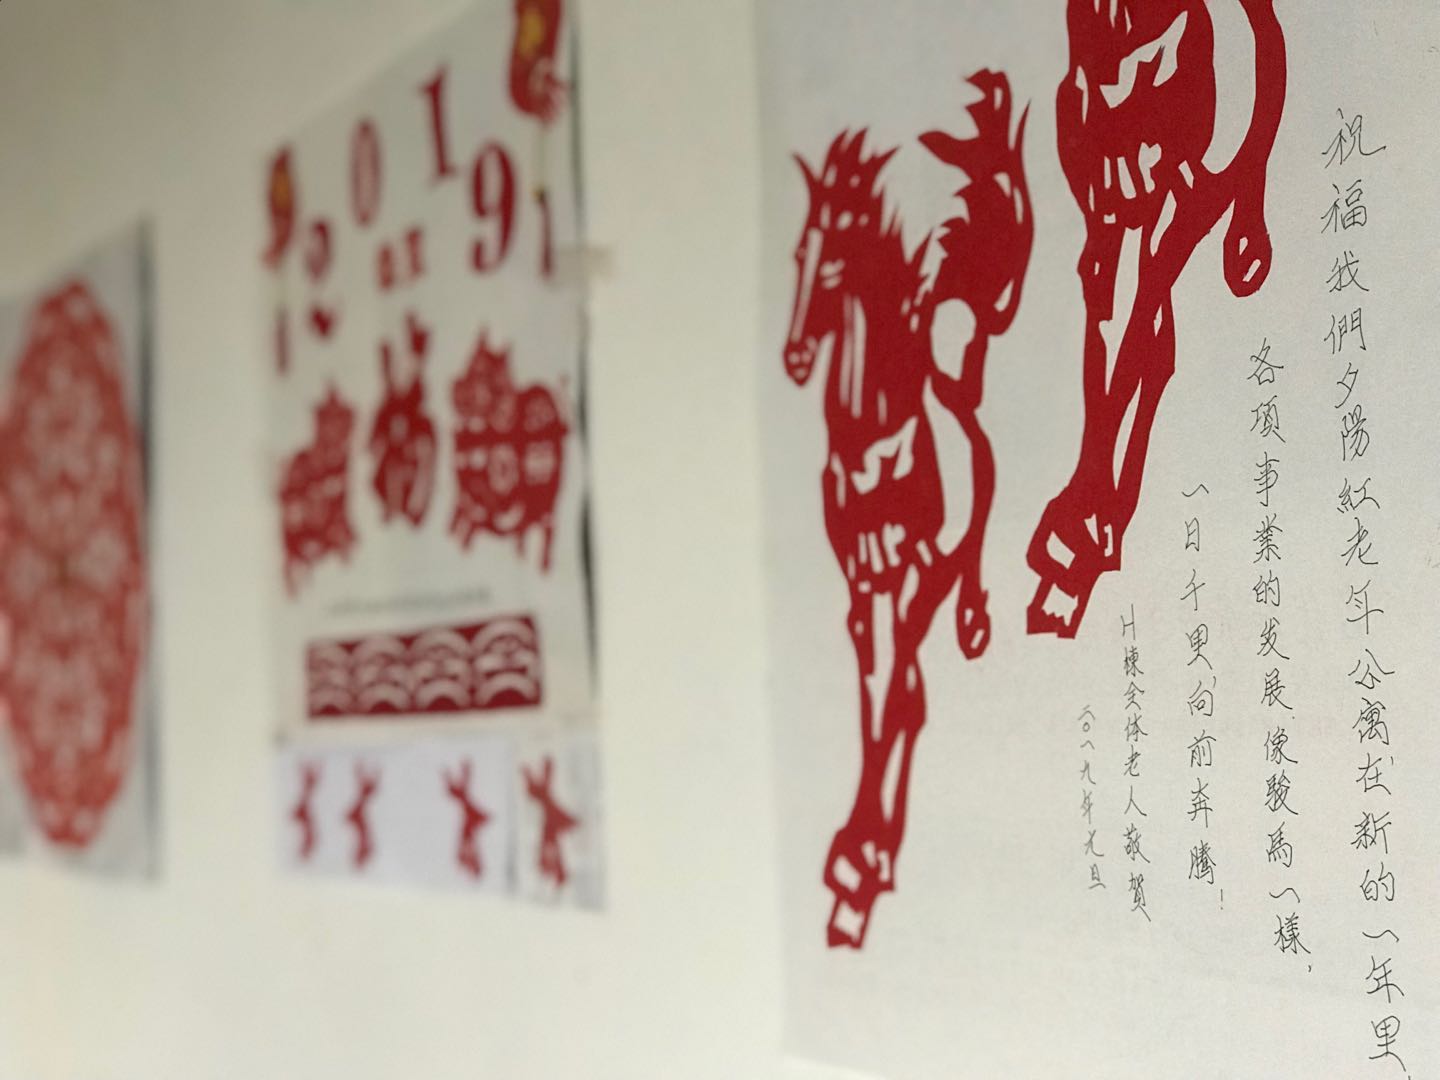 祝福我們夕陽紅老年公寓在新的一年里,
各項事業的发展像駿馬一樣,
一日千里,向前奔腾!
H棟全体老人敬賀
二〇一九年元旦
2019